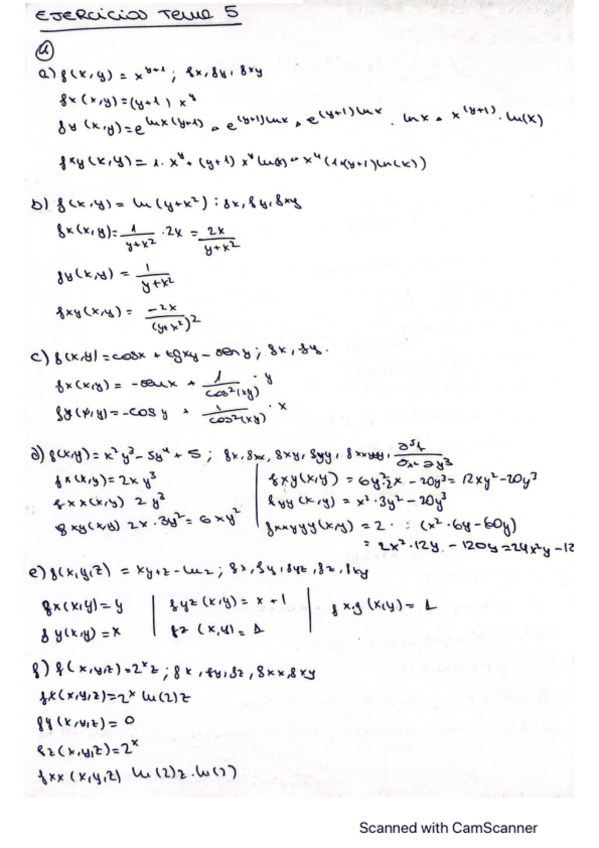 EJERCICIOS Tema 5
①
a) f(x,y) = x^(y+1) ; fx, fy, fxy
fx(x,y) = (y+1) x^y
fy(x,y) = e^(lnx(y+1)) = e^((y+1)lnx) = e^((y+1)lnx) · lnx = x^(y+1) · ln(x)
fxy(x,y) = 1 · x^y + (y+1) x^y ln(x) = x^y (1+(y+1)ln(x))
b) f(x,y) = ln(y+x²) ; fx, fy, fxy
fx(x,y) = 1/(y+x²) · 2x = 2x/(y+x²)
fy(x,y) = 1/(y+x²)
fxy(x,y) = -2x/(y+x²)²
c) f(x,y) = cosx + tgxy - sen y ; fx, fy.
fx(x,y) = -senx + 1/cos²(xy) · y
fy(x,y) = -cos y + 1/cos²(xy) · x
d) f(x,y) = x²y³ - 5y⁴ + 5 ; fx, fxx, fxy, fyy, fxxyyy, ∂⁵f/∂x²∂y³
fx(x,y) = 2xy³
fxx(x,y) 2y³
fxy(x,y) 2x · 3y² = 6xy²
fxy(x,y) = 6y²·2x - 20y³ = 12xy² - 20y³
fyy(x,y) = x² · 3y² - 20y³
fxxyyy(x,y) = 2 · : (x² · 6y - 60y)
= 2x² · 12y - 120y = 24x²y - 12
e) f(x,y,z) = xy+z - ln2 ; fx, fy, fyz, fz, fxy
fx(x,y) = y
fy(x,y) = x
fyz(x,y) = x+1
fz(x,y) = 1
fxy(x,y) = 1
f) f(x,y,z) = 2^x z ; fx, fy, fz, fxx, fxy
fx(x,y,z) = 2^x ln(2) z
fy(x,y,z) = 0
fz(x,y,z) = 2^x
fxx(x,y,z) ln(2) z · ln(2)
Scanned with CamScanner